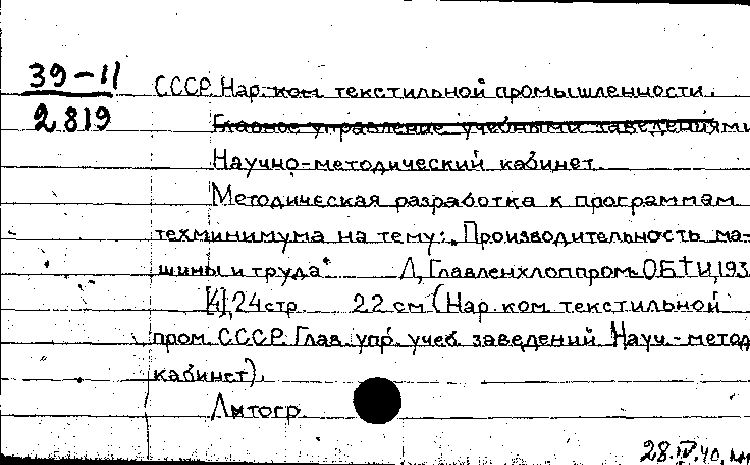 39-11
2819
СССР. Нар. ком текстильной промышленности.
Главное управление учебными заведениями
Научно-методический кабинет.
Методическая разработка к программам
техминимума на тему: „Производительность ма-
шины и труда"     Л, Главленхлоппром-ОБТИ, 193
[4], 24 стр     22 см (Нар. ком текстильной
пром СССР. Глав. упр. учеб. заведений Науч.-метод
кабинет).
Литогр
28.IV.40.